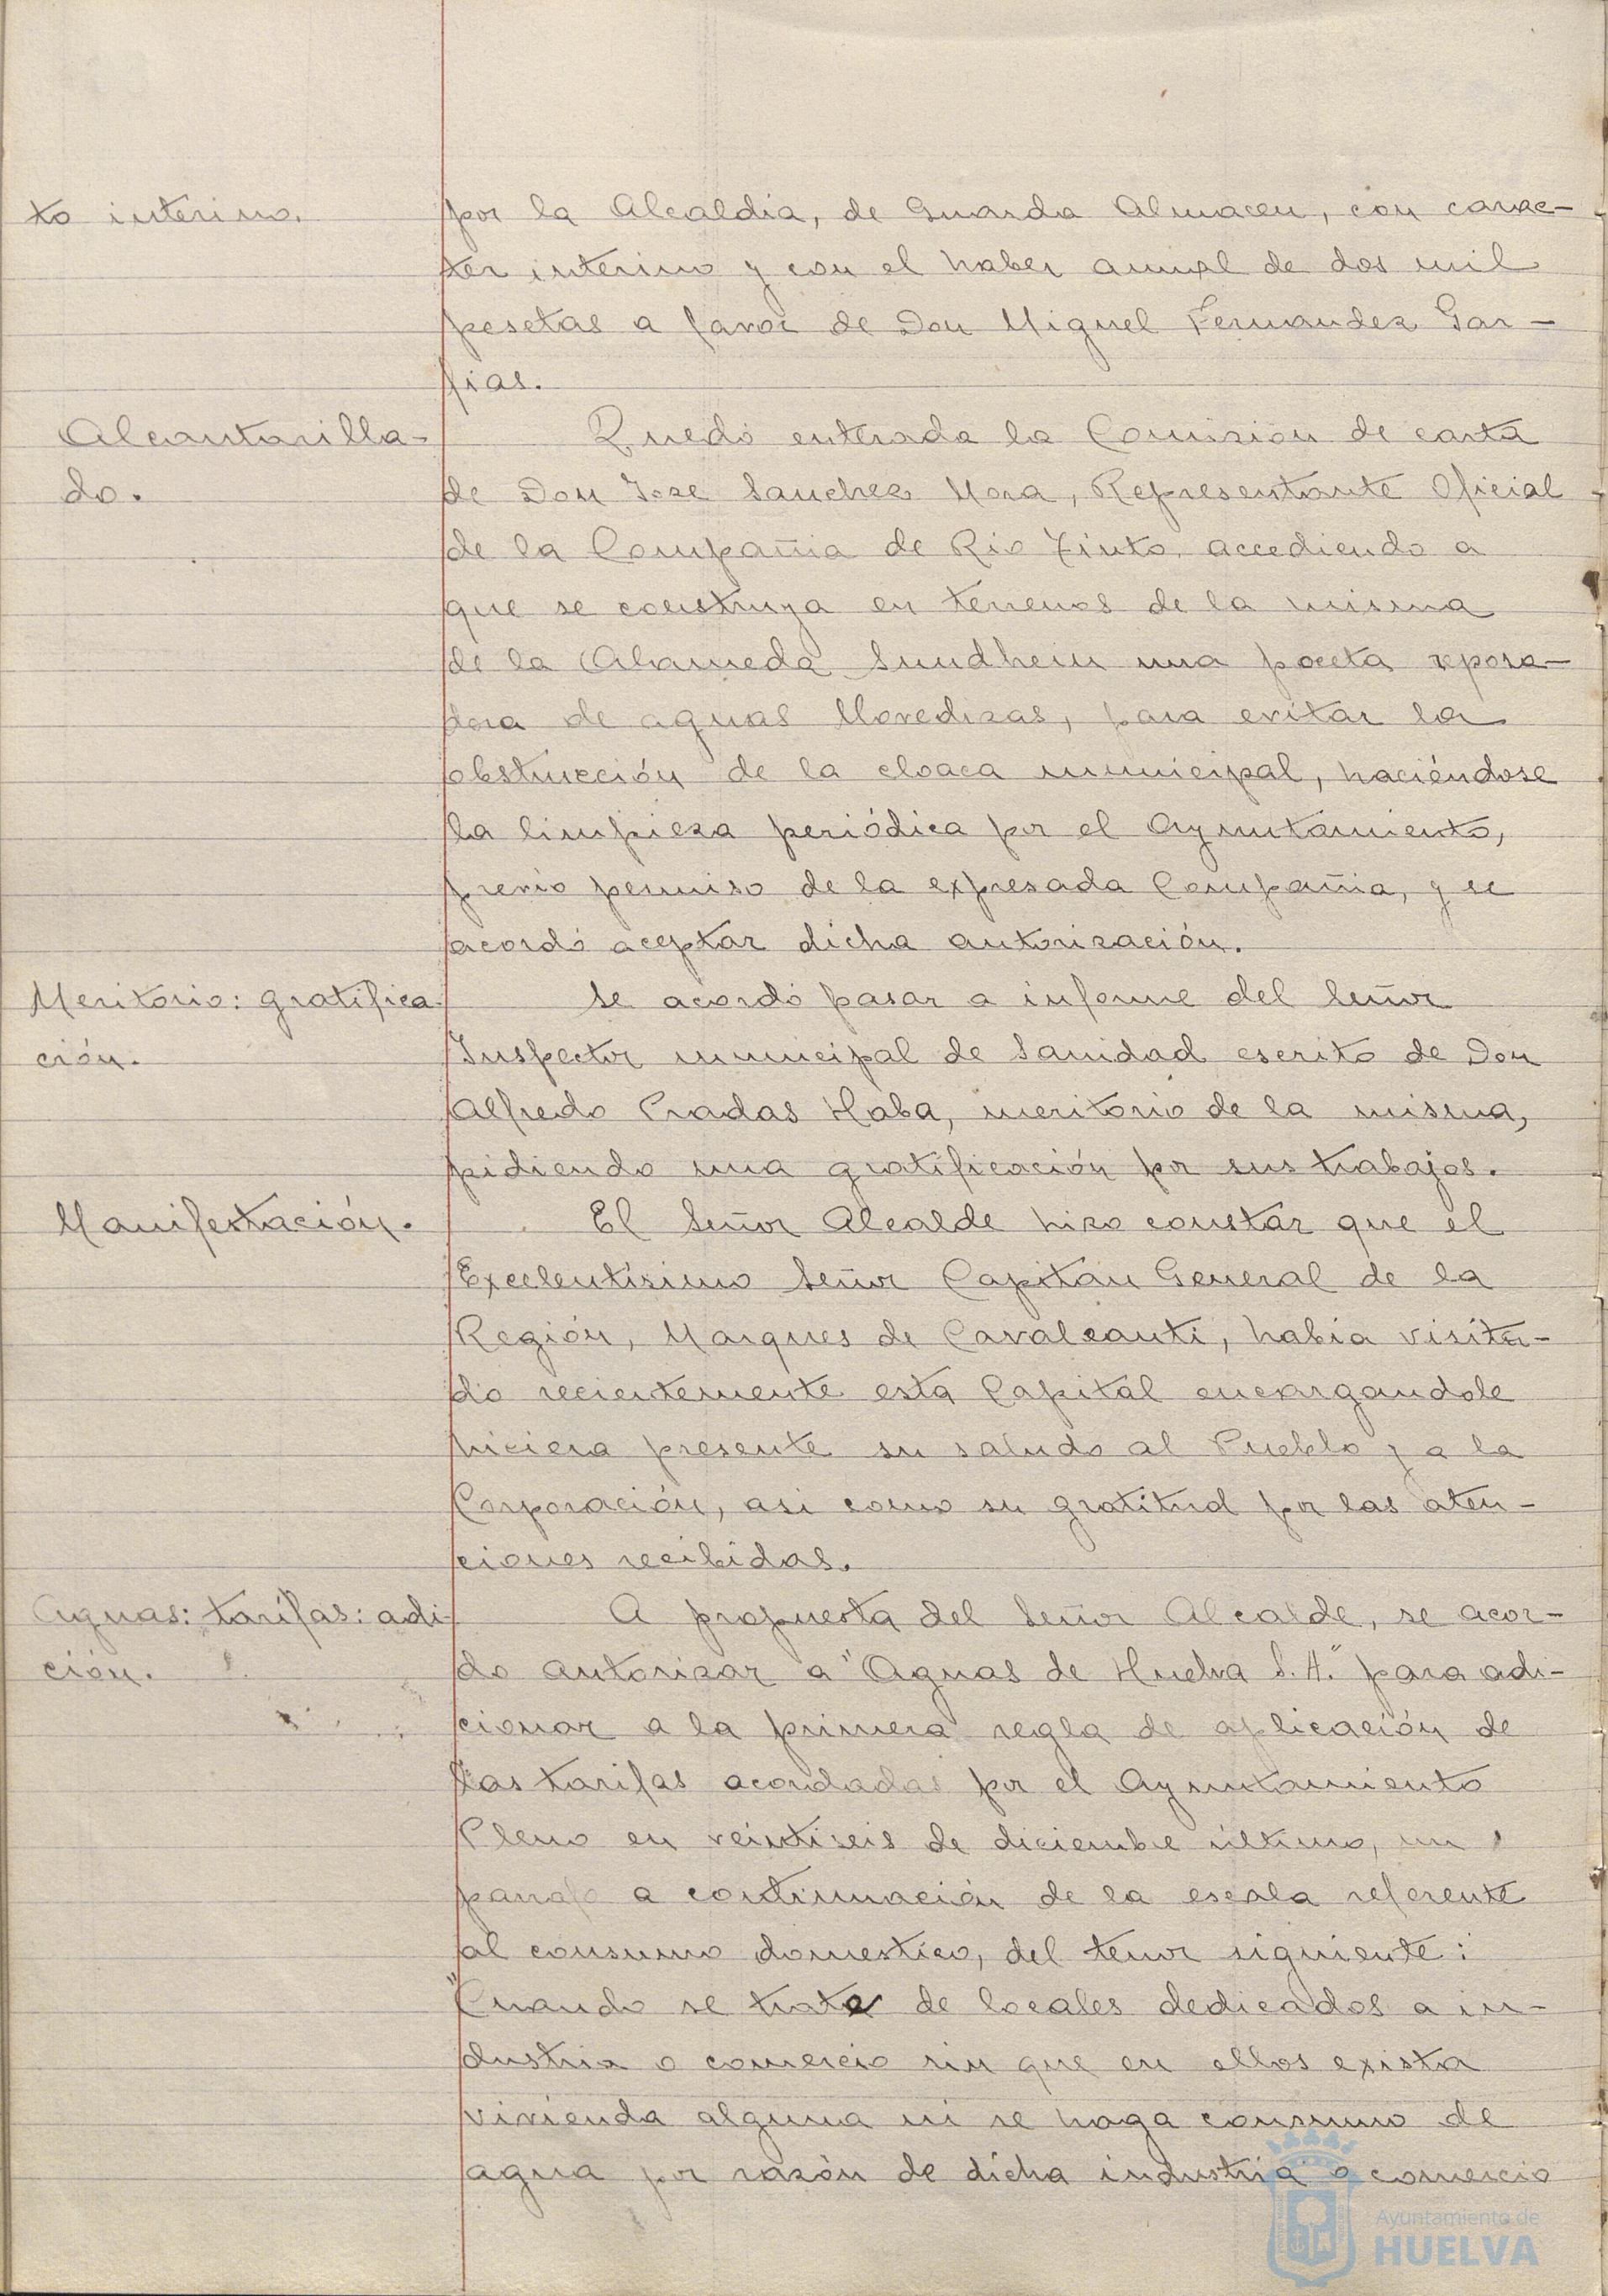 to interino.
por la Alcaldia, de Guarda Almacen, con carac-
ter interino y con el haber anual de dos mil
pesetas a favor de Don Miguel Fernandez Gar-
fias.
Alcantarilla-
do.
Quedó enterada la Comision de carta
de Don Jose Sanchez Mora, Representante Oficial
de la Compañia de Rio Tinto, accediendo a
que se construya en terrenos de la misma
de la Alameda Sundhein una poceta reposa-
dora de aguas llovedizas, para evitar la
obstrucción de la cloaca municipal, haciéndose
la limpieza periódica por el Ayuntamiento,
previo permiso de la expresada Compañia, y se
acordó aceptar dicha autorización.
Meritorio: gratifica-
ción.
Se acordó pasar a informe del Señor
Inspector municipal de Sanidad escrito de Don
Alfredo Pradas Haba, meritorio de la misma,
pidiendo una gratificación por sus trabajos.
Manifestación.
El Señor Alcalde hizo constar que el
Excelentísimo Señor Capitan General de la
Región, Marques de Cavalcanti, habia visita-
do recientemente esta Capital encargandole
hiciera presente su saludo al Pueblo y a la
Corporación, asi como su gratitud por las aten-
ciones recibidas.
Aguas: tarifas: adi-
ción.
A propuesta del Señor Alcalde, se acor-
do autorizar a "Aguas de Huelva S. A." para adi-
cionar a la primera regla de aplicación de
las tarifas acordadas por el Ayuntamiento
Pleno en veintiseis de diciembre último, un
parrafo a continuación de la escala referente
al consumo domestico, del tenor siguiente:
"Cuando se trate de locales dedicados a in-
dustria o comercio sin que en ellos exista
vivienda alguna ni se haga consumo de
agua por razón de dicha industria o comercio
Ayuntamiento de
HUELVA